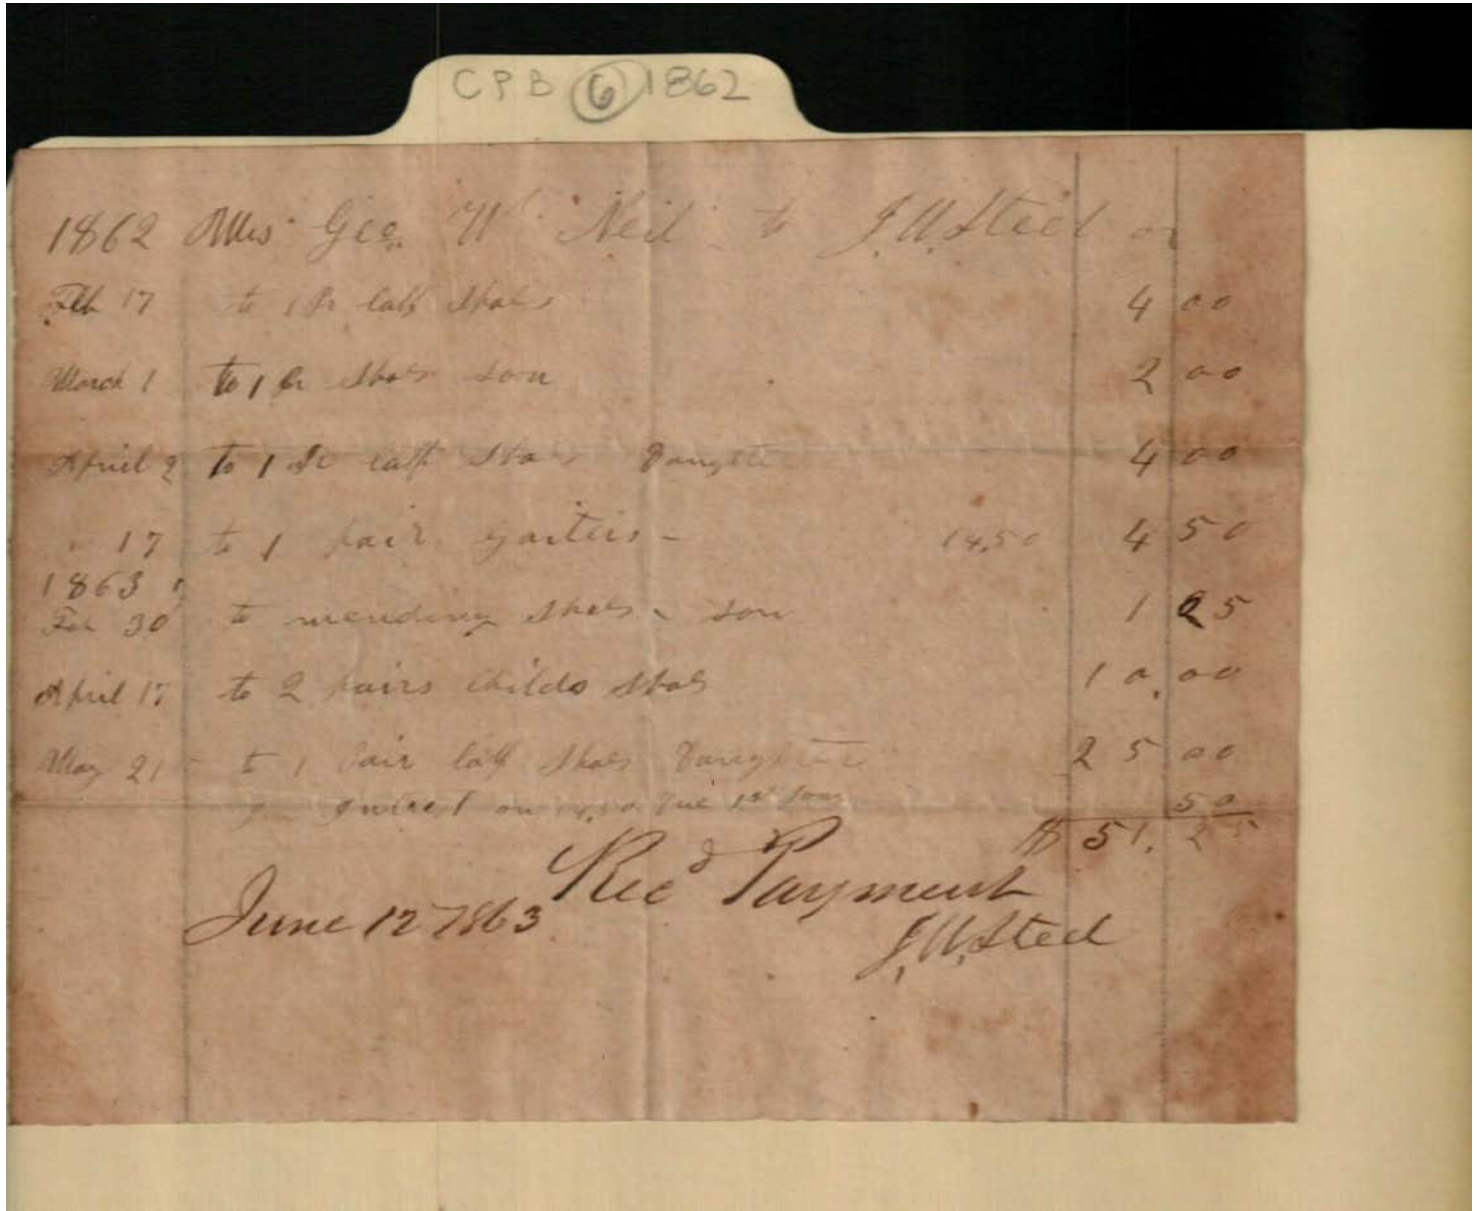 CPB 6 1862
1862 Mrs Geo W Neil to J.W. Steel Dr
Feb 17 to 1 Pr calf Shoes 4 00
March 1 to 1 Pr Shoes son 2 00
April 2 to 1 Pr calf Shoes Daughter 4 00
" 17 to 1 pair gaiters - 14,50 4 50
1863
Feb 30 to mending Shoes - son 1 25
April 17 to 2 pairs Childs Shoes 10.00
May 21 - to 1 Pair calf Shoes Daughter 25 00
Interest on 14,50 Due 1st 50
$ 51. 25
Recd Payment
June 12 1863
J.W. Steel